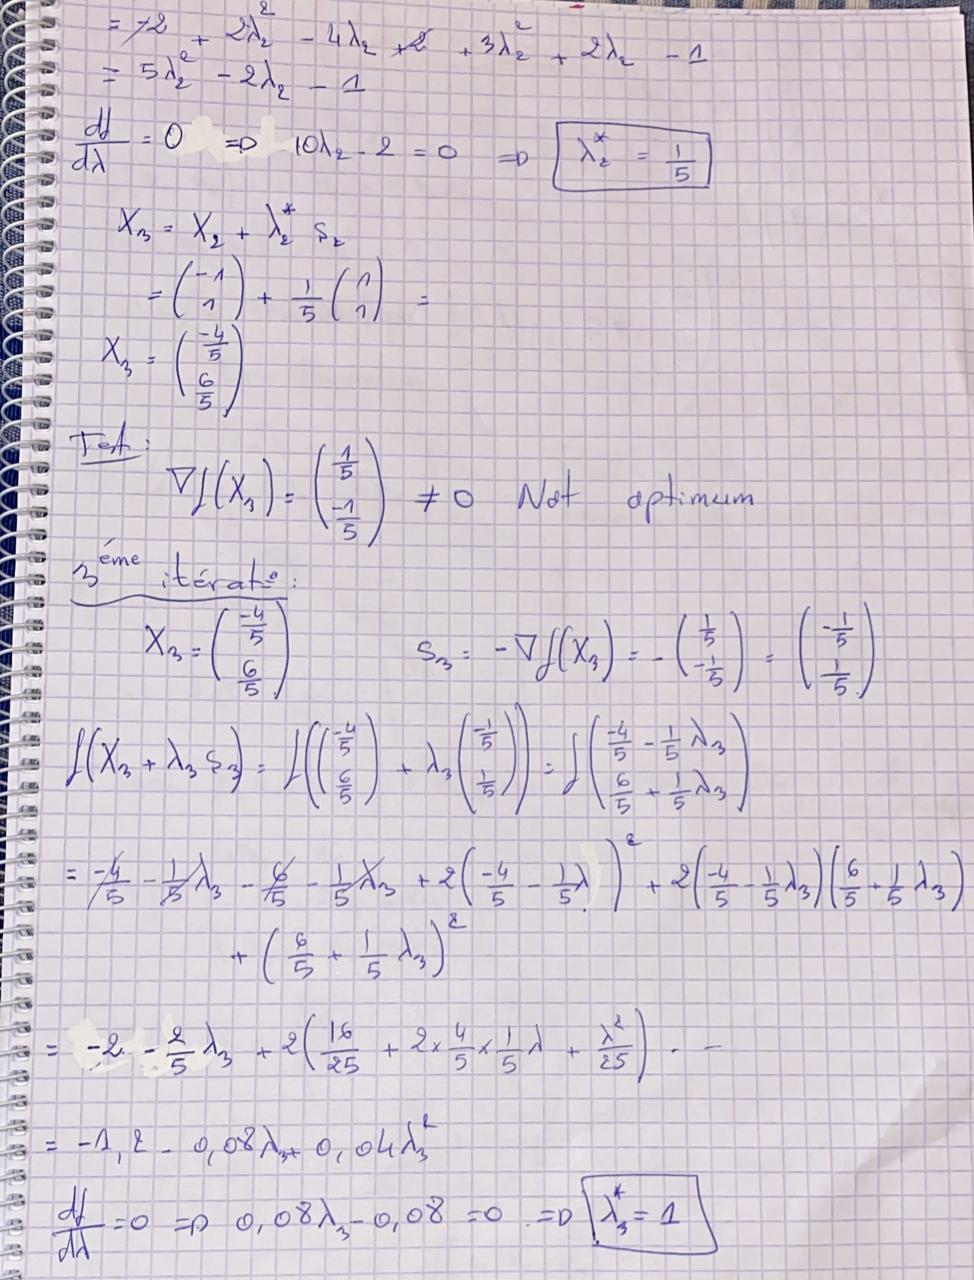 = -2 + 2λ₂² - 4λ₂ + 2 + 3λ₂² + 2λ₂ - 1
= 5λ₂² - 2λ₂ - 1
df/dλ = 0 => 10λ₂ - 2 = 0 => λ₂* = 1/5
X₃ = X₂ + λ₂* S₂
= (-1 1) + 1/5 (1 1) =
X₃ = (-4/5 6/5)
Test:
∇f(X₃) = (1/5 -1/5) ≠ 0 Not optimum
3éme itérat°:
X₃ = (-4/5 6/5) S₃ = -∇f(X₃) = -(1/5 -1/5) = (-1/5 1/5)
f(X₃ + λ₃ S₃) = f((-4/5 6/5) + λ₃ (-1/5 1/5)) = f(-4/5 - 1/5 λ₃ 6/5 + 1/5 λ₃)
= -4/5 - 1/5 λ₃ - 6/5 - 1/5 λ₃ + 2(-4/5 - 1/5 λ)² + 2(-4/5 - 1/5 λ₃)(6/5 + 1/5 λ₃)
+ (6/5 + 1/5 λ₃)²
= -2 - 2/5 λ₃ + 2(16/25 + 2 × 4/5 × 1/5 λ + λ²/25) - -
= -1,2 - 0,08λ₃ + 0,04λ₃²
df/dλ = 0 => 0,08λ₃ - 0,08 = 0 => λ₃* = 1